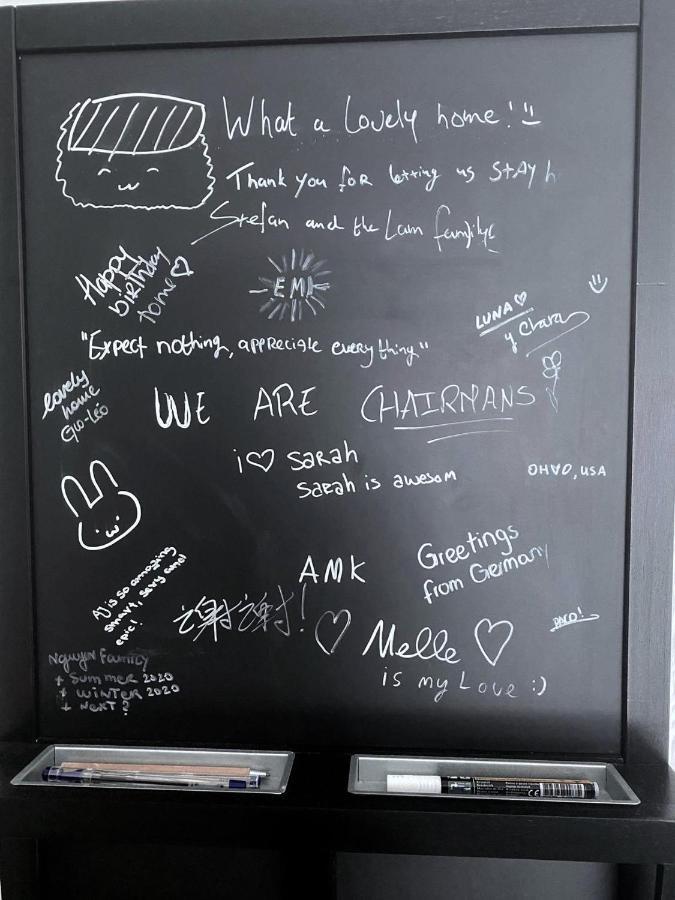 What a lovely home! :)
Thank you for letting us stay h
Stefan and the Lam family
Happy
birthday
home ♡
EMI
LUNA ♡
y Chara
"Expect nothing, appreciate everything"
lovely
home
Gio-Léo
WE ARE CHAIRMANS
i ♡ sarah
sarah is awesom
OHAO, USA
AMK
Greetings
from Germany
AJ is so amazing
smart, sexy and
epic!
谢谢!
PACO!
♡ Melle ♡
is my Love :)
Nguyen Family
+ Summer 2020
+ WINTER 2020
+ NEXT ?